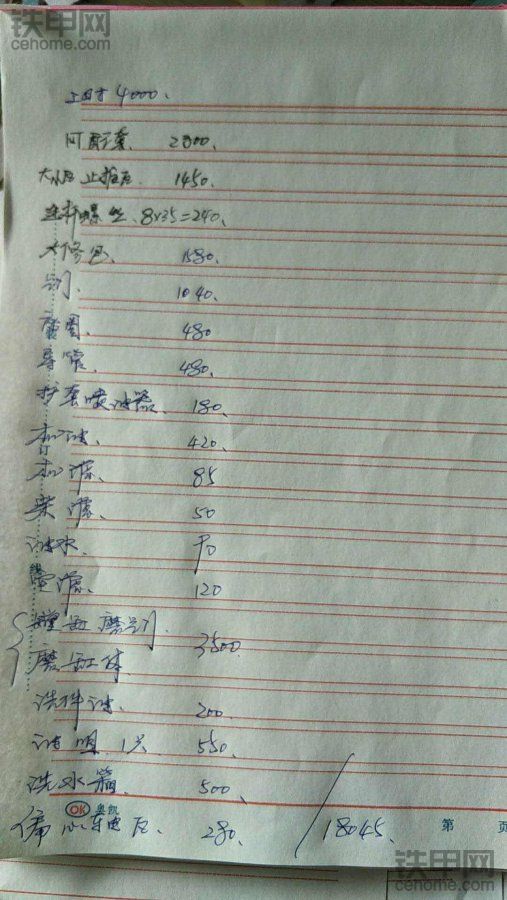 铁甲网
cehome.com
4000.
四配套. 2800.
大小瓦 止推瓦. 1450.
连杆螺丝. 8x35=240.
大修包. 1580.
气门. 1040.
座圈. 480
导管. 480.
护套喷油器. 180.
机油. 420.
机滤. 85
柴滤. 50
油水. 90
空滤. 120
镗缸磨气门. 3500.
磨缸体
洗件油. 200.
油咀. 1只 550.
洗水箱. 500.
OK 奥凯
偏心 瓦. 280. / 18045.
第 页
铁甲网
cehome.com